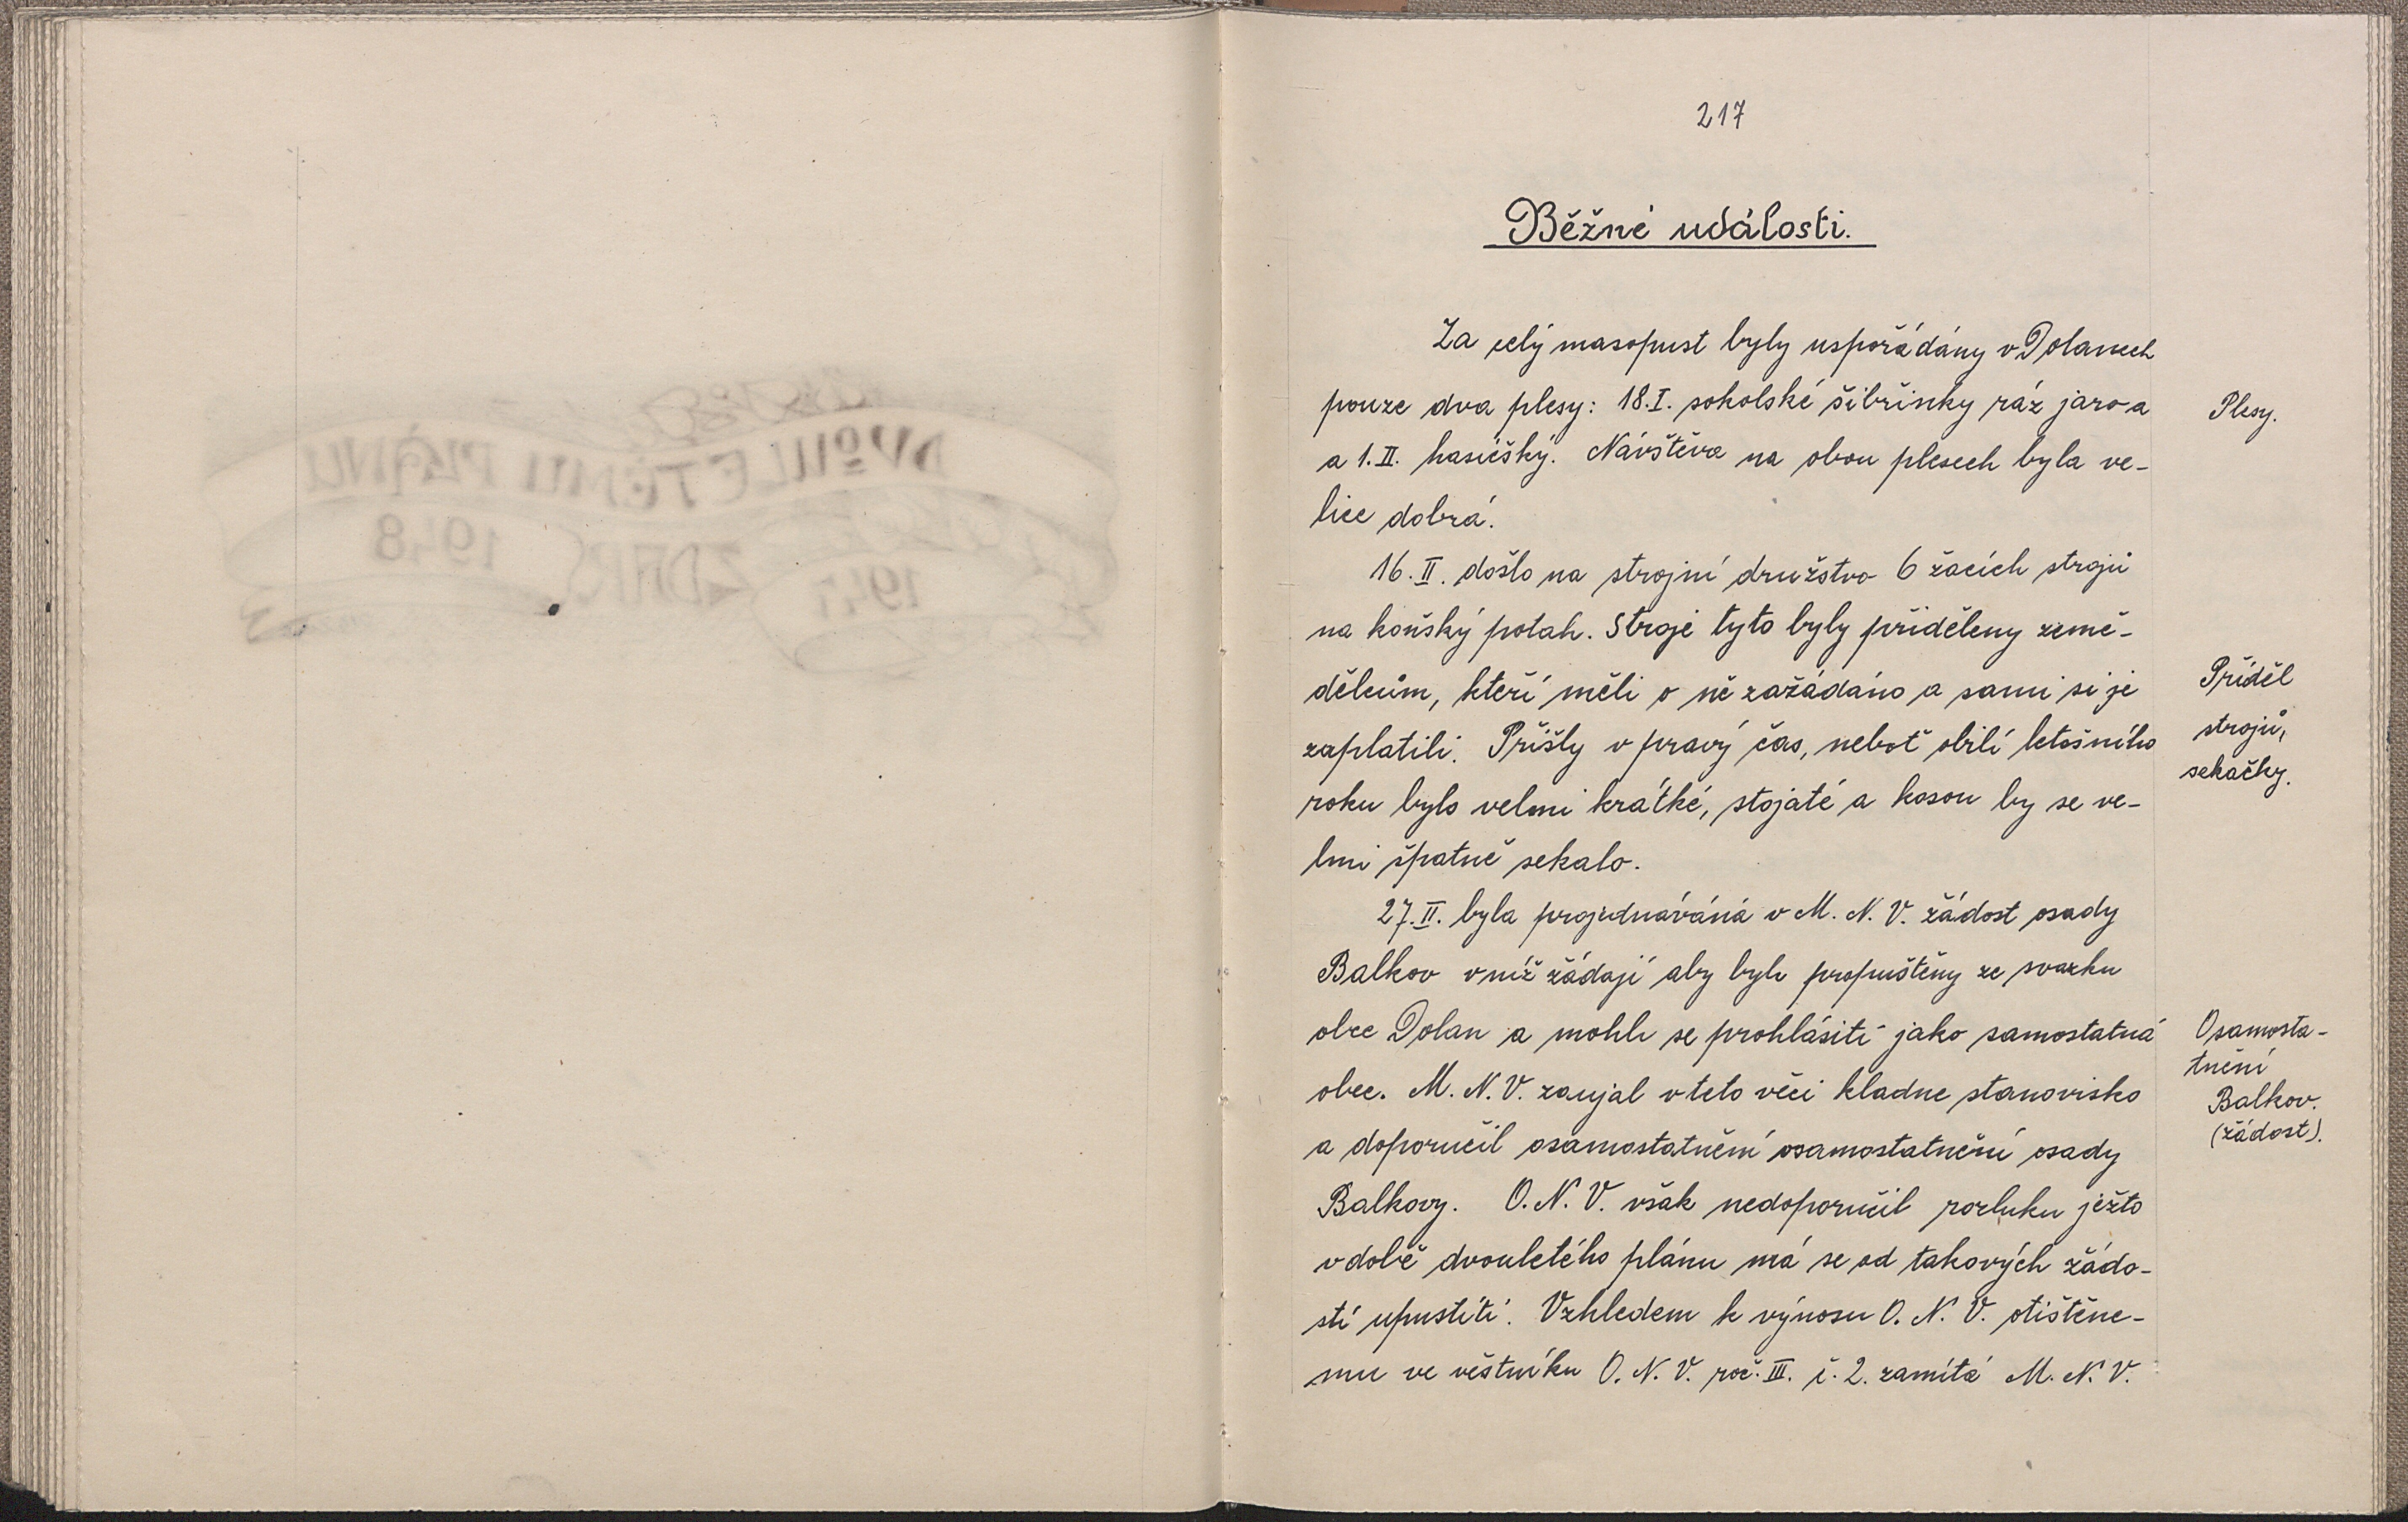 217
Běžné události.
Za celý masopust byly uspořádány v Dolanech
pouze dva plesy: 18.I. sokolské šibřinky ráz jaro a
a 1.II. hasičský. Návštěva na obou plesech byla ve-
lice dobrá.
Plesy.
16.II. došlo na strojní družstvo 6 žacích strojů
na koňský potah. Stroje tyto byly přiděleny země-
dělcům, kteří měli o ně zažádáno a sami si je
zaplatili. Přišly v pravý čas, neboť obilí letošního
roku bylo velmi krátké, stojaté a kosou by se ve-
lmi špatně sekalo.
Příděl
strojů,
sekačky.
27.II. byla projednávána v M.N.V. žádost osady
Balkov v níž žádají aby byli propuštěny ze svazku
obce Dolan a mohli se prohlásiti jako samostatná
obec. M.N.V. zaujal v teto věci kladne stanovisko
a doporučil osamostatnění osamostatnění osady
Balkovy. O.N.V. však nedoporučil rozluku ježto
v době dvouletého plánu má se od takových žádo-
stí upustiti. Vzhledem k výnosu O.N.V. otištěne-
mu ve věstníku O.N.V. roč. III. č. 2. zamítá M.N.V.
Osamosta-
tnění
Balkov.
(žádost).
DVOULETÉMU PLÁNU
1947 ZDAR 1948